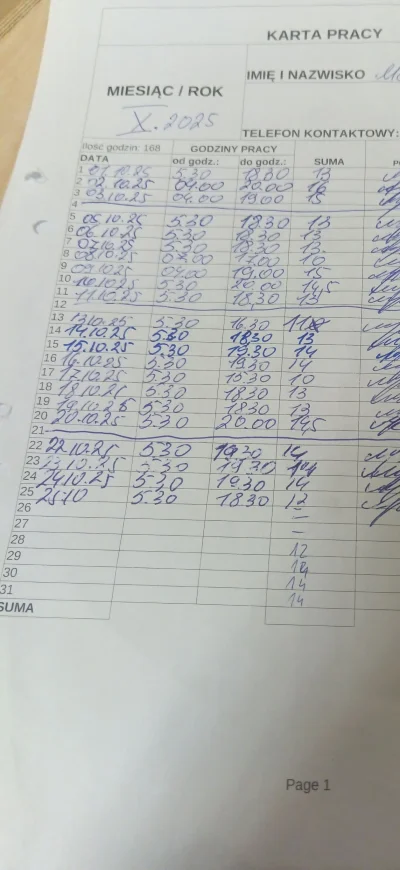 KARTA PRACY
MIESIĄC / ROK
IMIĘ I NAZWISKO
X. 2025
TELEFON KONTAKTOWY:
ilość godzin: 168 GODZINY PRACY
DATA od godz.: do godz.: SUMA
1 01.10.25 5.30 18.30 13
2 02.10.25 04.00 20.00 16
3 03.10.25 04.00 19.00 15
4
5 05.10.25 5.30 18.30 13
6 06.10.25 5.30 18.30 13
7 07.10.25 5.30 18.30 13
8 08.10.25 07.00 17.00 10
9 09.10.25 04.00 19.00 15
10 10.10.25 5.30 20.00 14,5
11 11.10.25 5.30 18.30 13
12
13 13.10.25 5.30 16.30
14 14.10.25 5.30 18.30 13
15 15.10.25 5.30 19.30 14
16 16.10.25 5.30 19.30 14
17 17.10.25 5.30 15.30 10
18 18.10.25 5.30 18.30 13
19 19.10.25 5.30 18.30 13
20 20.10.25 5.30 20.00 14,5
21
22 22.10.25 5.30 19.30 14
23 23.10.25 5.30 19.30 14
24 24.10.25 5.30 19.30 14
25 25.10 5.30 18.30 12
26 –
27 –
28 12
29
30 14
31 14
SUMA
Page 1